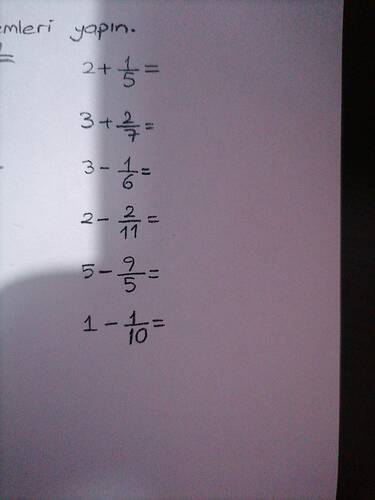 yapın.
2 + 1/5 =
3 + 2/7 =
3 - 1/6 =
2 - 2/11 =
5 - 9/5 =
1 - 1/10 =